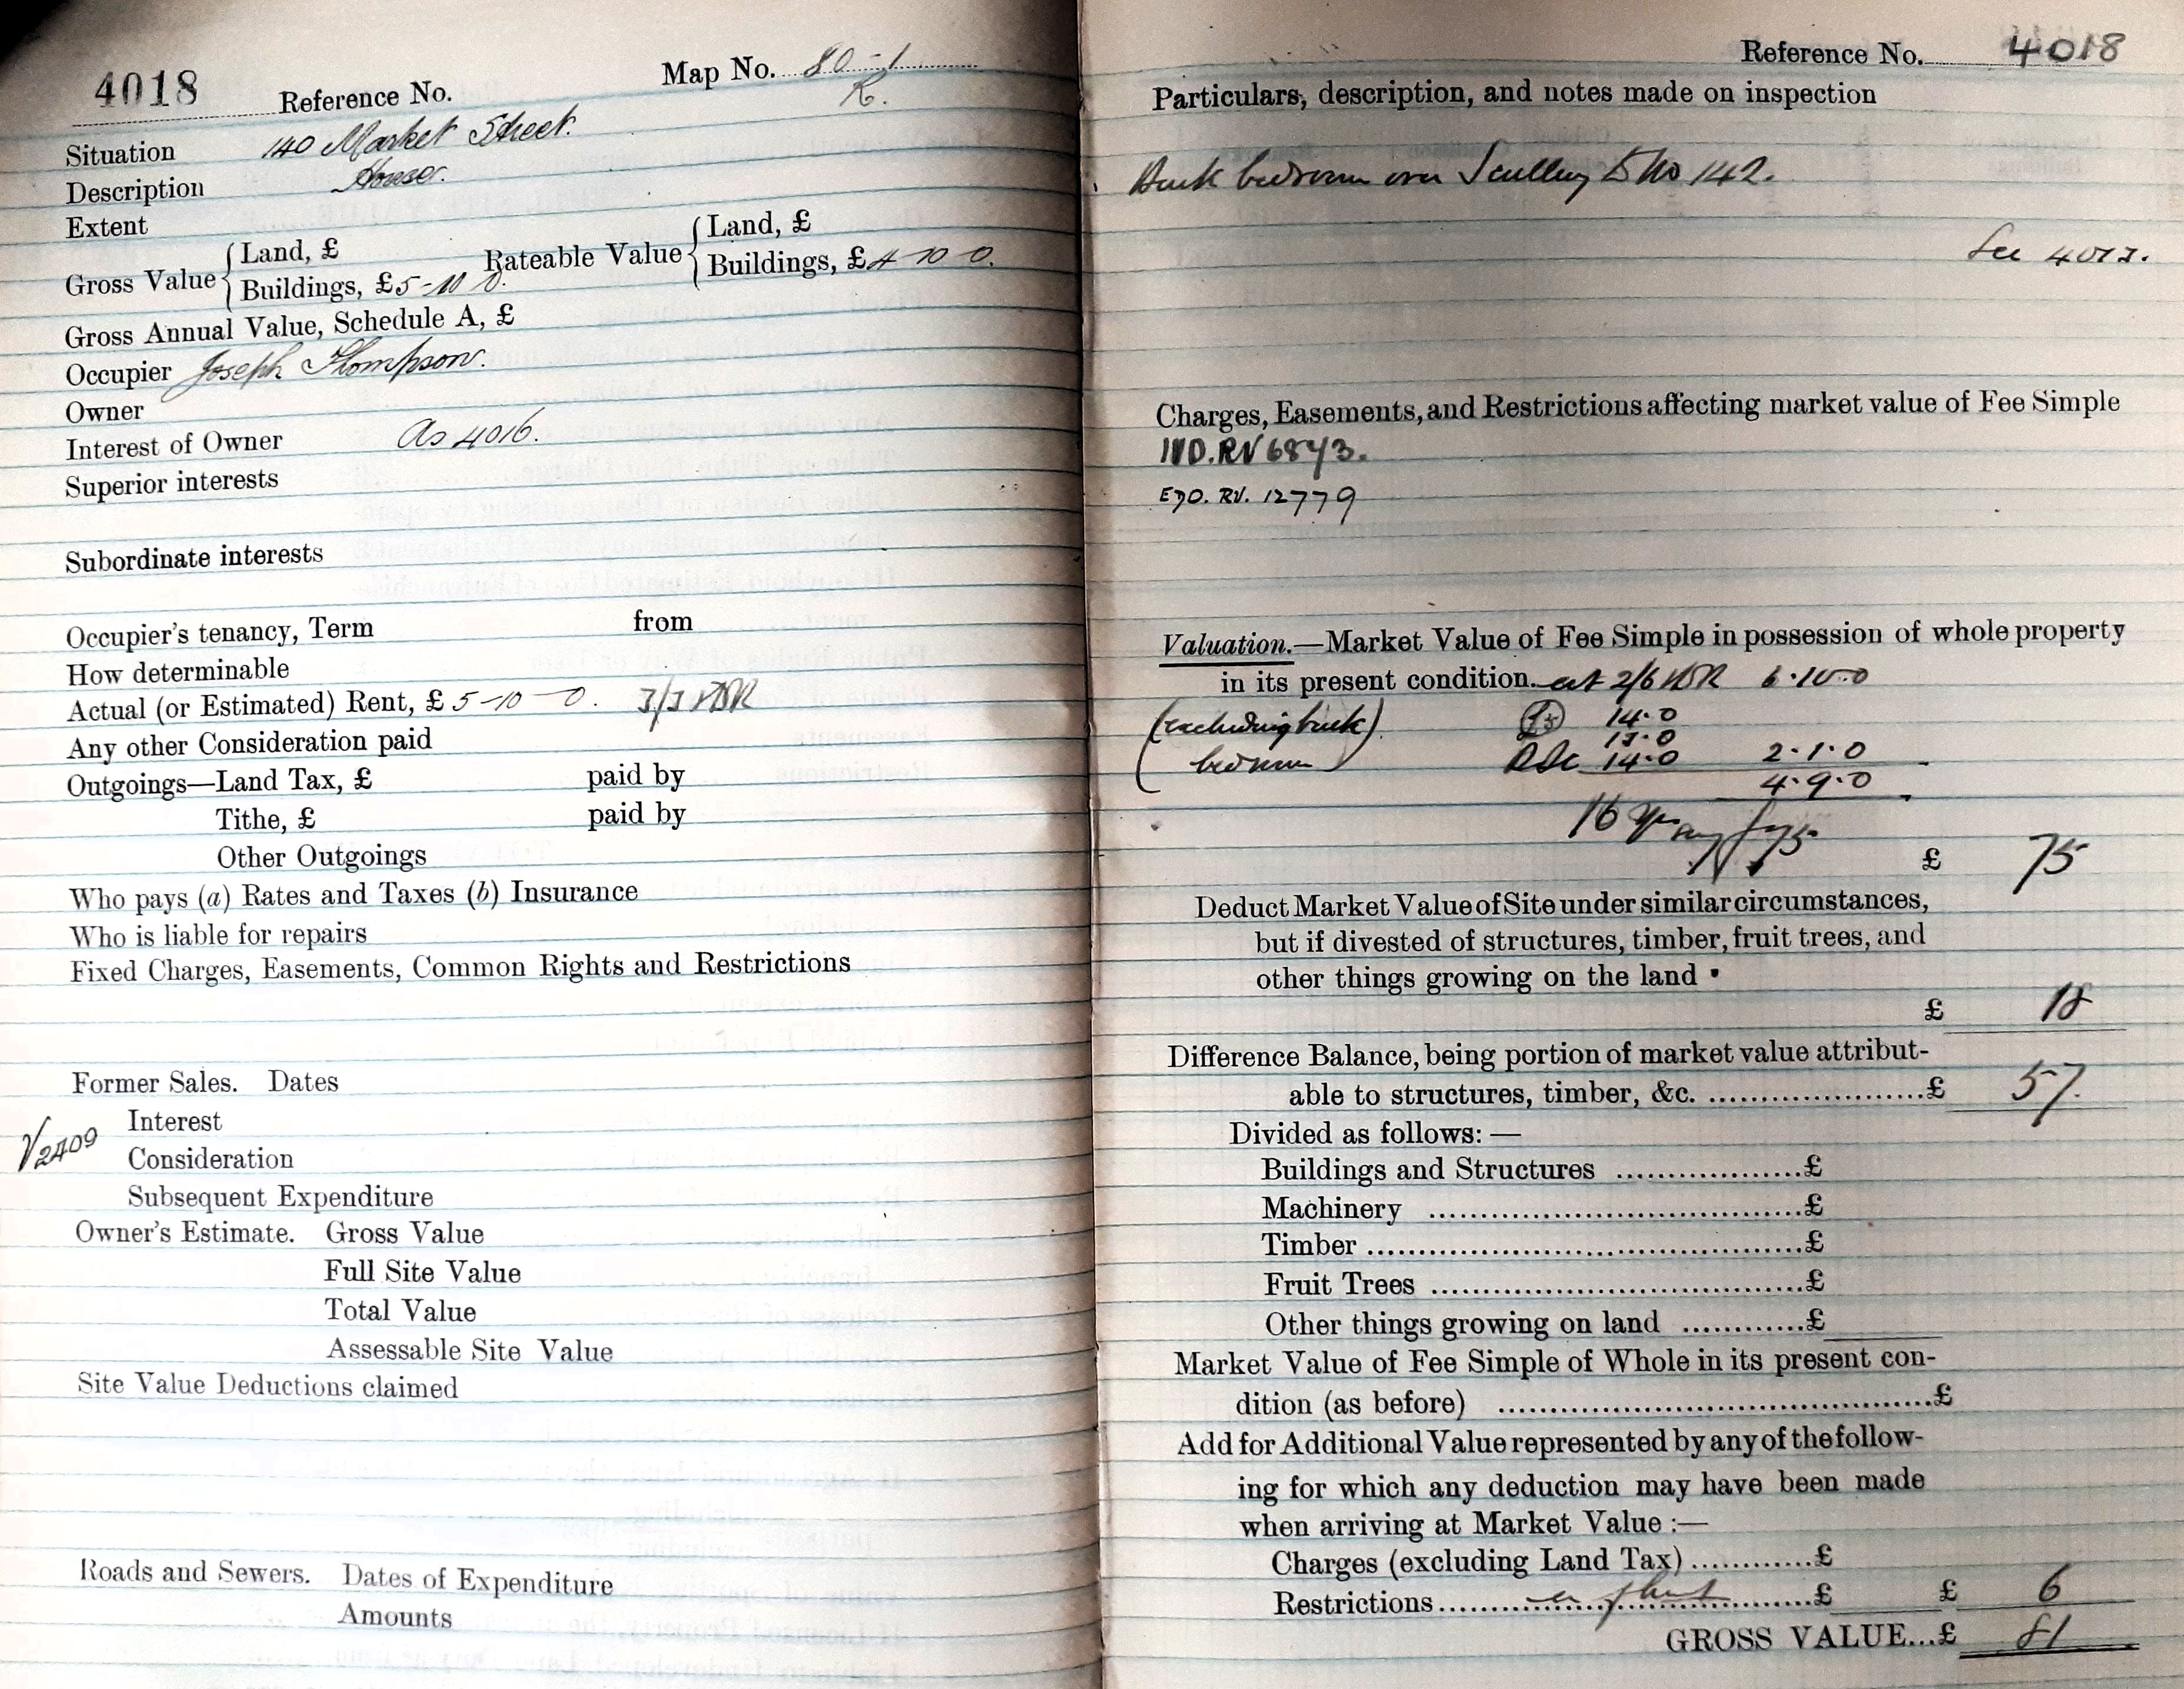 4018 Reference No. Map No. 80-1
R.
Situation 140 Market Street.
Description House.
Extent
Gross Value { Land, £ Rateable Value { Land, £
Buildings, £5-10 0. Buildings, £4 10 0.
Gross Annual Value, Schedule A, £
Occupier Joseph Thompson.
Owner
Interest of Owner As 4016.
Superior interests
Subordinate interests
Occupier's tenancy, Term from
How determinable
Actual (or Estimated) Rent, £ 5-10-0.
Any other Consideration paid
Outgoings—Land Tax, £ paid by
Tithe, £ paid by
Other Outgoings
Who pays (a) Rates and Taxes (b) Insurance
Who is liable for repairs
Fixed Charges, Easements, Common Rights and Restrictions
Former Sales. Dates
Interest
V2409
Consideration
Subsequent Expenditure
Owner's Estimate. Gross Value
Full Site Value
Total Value
Assessable Site Value
Site Value Deductions claimed
Roads and Sewers. Dates of Expenditure
Amounts
Reference No. 4018
Particulars, description, and notes made on inspection
Back bedroom over Scullery to No 142.
See 4013.
Charges, Easements, and Restrictions affecting market value of Fee Simple
IND. RV 6843.
EDO. RV. 12779
Valuation.—Market Value of Fee Simple in possession of whole property
in its present condition. at 2/6 6.10.0
(excluding back) 14.0
13.0
bedroom 14.0 2.1.0
4.9.0
16 yrs say £75
£ 75
Deduct Market Value of Site under similar circumstances,
but if divested of structures, timber, fruit trees, and
other things growing on the land
£ 18
Difference Balance, being portion of market value attribut-
able to structures, timber, &c. ....................£ 57.
Divided as follows: —
Buildings and Structures ..................£
Machinery ....................................£
Timber ..........................................£
Fruit Trees ....................................£
Other things growing on land ............£
Market Value of Fee Simple of Whole in its present con-
dition (as before) ..........................................£
Add for Additional Value represented by any of the follow-
ing for which any deduction may have been made
when arriving at Market Value :—
Charges (excluding Land Tax)............£
Restrictions.......................................£ £ 6
GROSS VALUE...£ 81